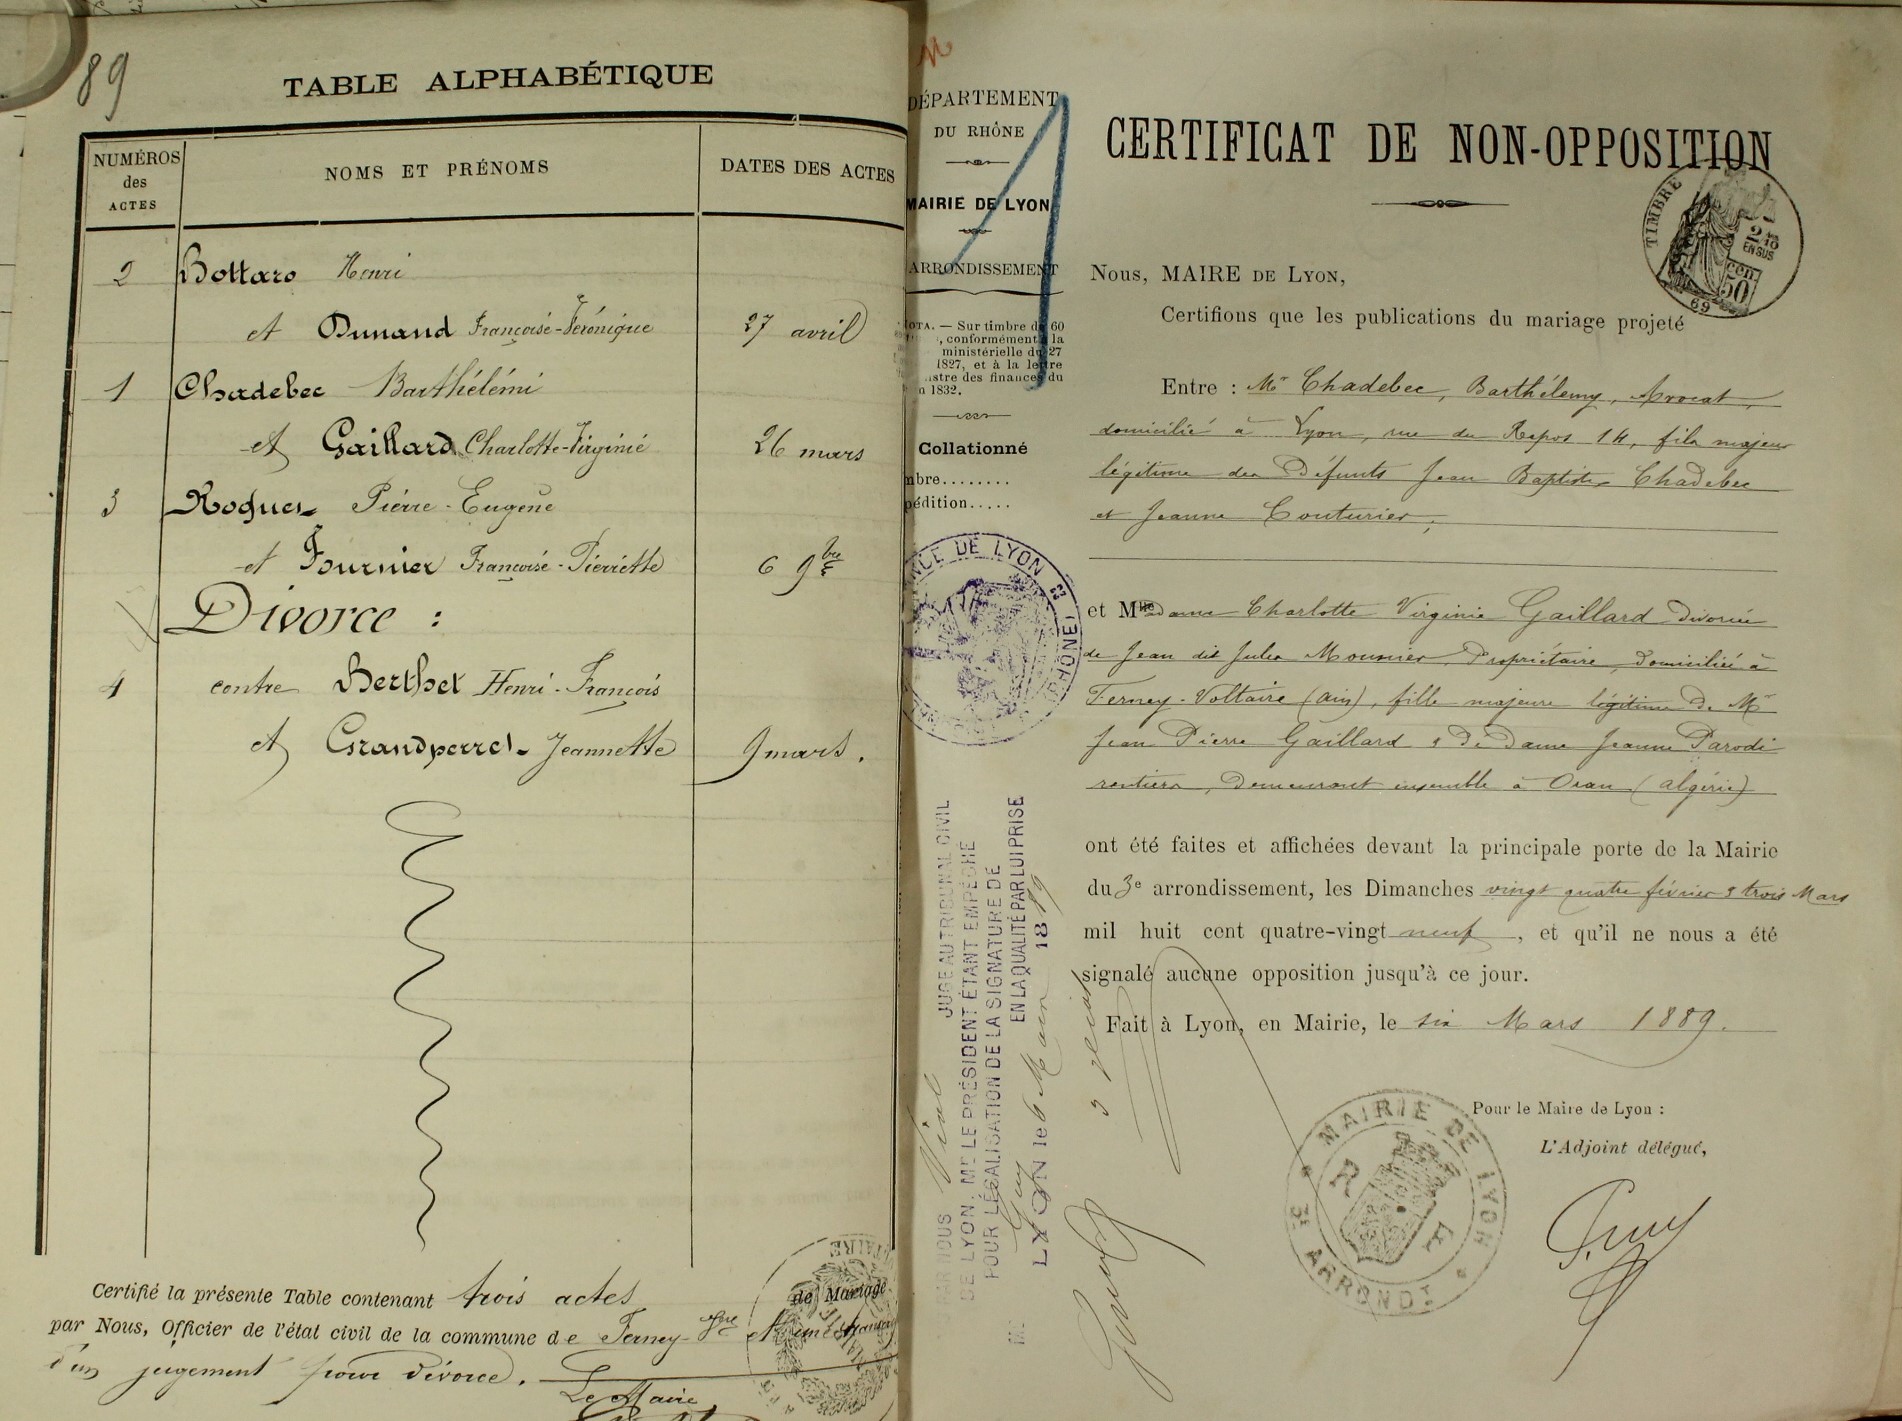 89
TABLE ALPHABÉTIQUE
NUMÉROS
des
ACTES
NOMS ET PRÉNOMS
DATES DES ACTES
2 Bottaro Henri
et Dunand Françoise-Véronique 27 avril
1 Chadebec Barthélémi
et Gaillard Charlotte-Virginie 26 mars
3 Roques Pierre-Eugène
et Fournier Françoise-Pierrette 6 9bre
Divorce :
4 contre Berthet Henri-François
et Grandperret Jeannette 9 mars.
Certifié la présente Table contenant trois actes de Mariage
par Nous, Officier de l'état civil de la commune de Ferney-
d'un jugement pour divorce.
Le Maire
DÉPARTEMENT
DU RHÔNE
MAIRIE DE LYON
ARRONDISSEMENT
OTA. — Sur timbre de 60
, conformément à la
ministérielle du 27
1827, et à la lettre
istre des finances du
n 1832.
Collationné
mbre........
pédition.....
NCE DE LYON
(RHÔNE)
JUGE AU TRIBUNAL CIVIL
DE LYON, Mr LE PRÉSIDENT ÉTANT EMPÊCHÉ
POUR LÉGALISATION DE LA SIGNATURE DE
EN LA QUALITÉ PAR LUI PRISE
LYON le 6 Mars 1889
CERTIFICAT DE NON-OPPOSITION
TIMBRE
2/10
EN SUS
50 cen
69
Nous, MAIRE DE LYON,
Certifions que les publications du mariage projeté
Entre : Mr Chadebec, Barthélemy, Avocat,
domicilié à Lyon, rue du Repos 14, fils majeur
légitime des Défunts Jean Baptiste Chadebec
et Jeanne Couturier,
et Madame Charlotte Virginie Gaillard divorcée
de Jean dit Jules Mounier, Propriétaire, domiciliée à
Ferney-Voltaire (ain), fille majeure légitime de Mr
Jean Pierre Gaillard & De Dame Jeanne Parodi
rentiers, Demeurant ensemble à Oran (algérie)
ont été faites et affichées devant la principale porte de la Mairie
du 3e arrondissement, les Dimanches vingt quatre février & trois Mars
mil huit cent quatre-vingt neuf, et qu'il ne nous a été
signalé aucune opposition jusqu'à ce jour.
Fait à Lyon, en Mairie, le six Mars 1889.
Pour le Maire de Lyon :
L'Adjoint délégué,
MAIRIE DE LYON
3e ARRONDT
R F